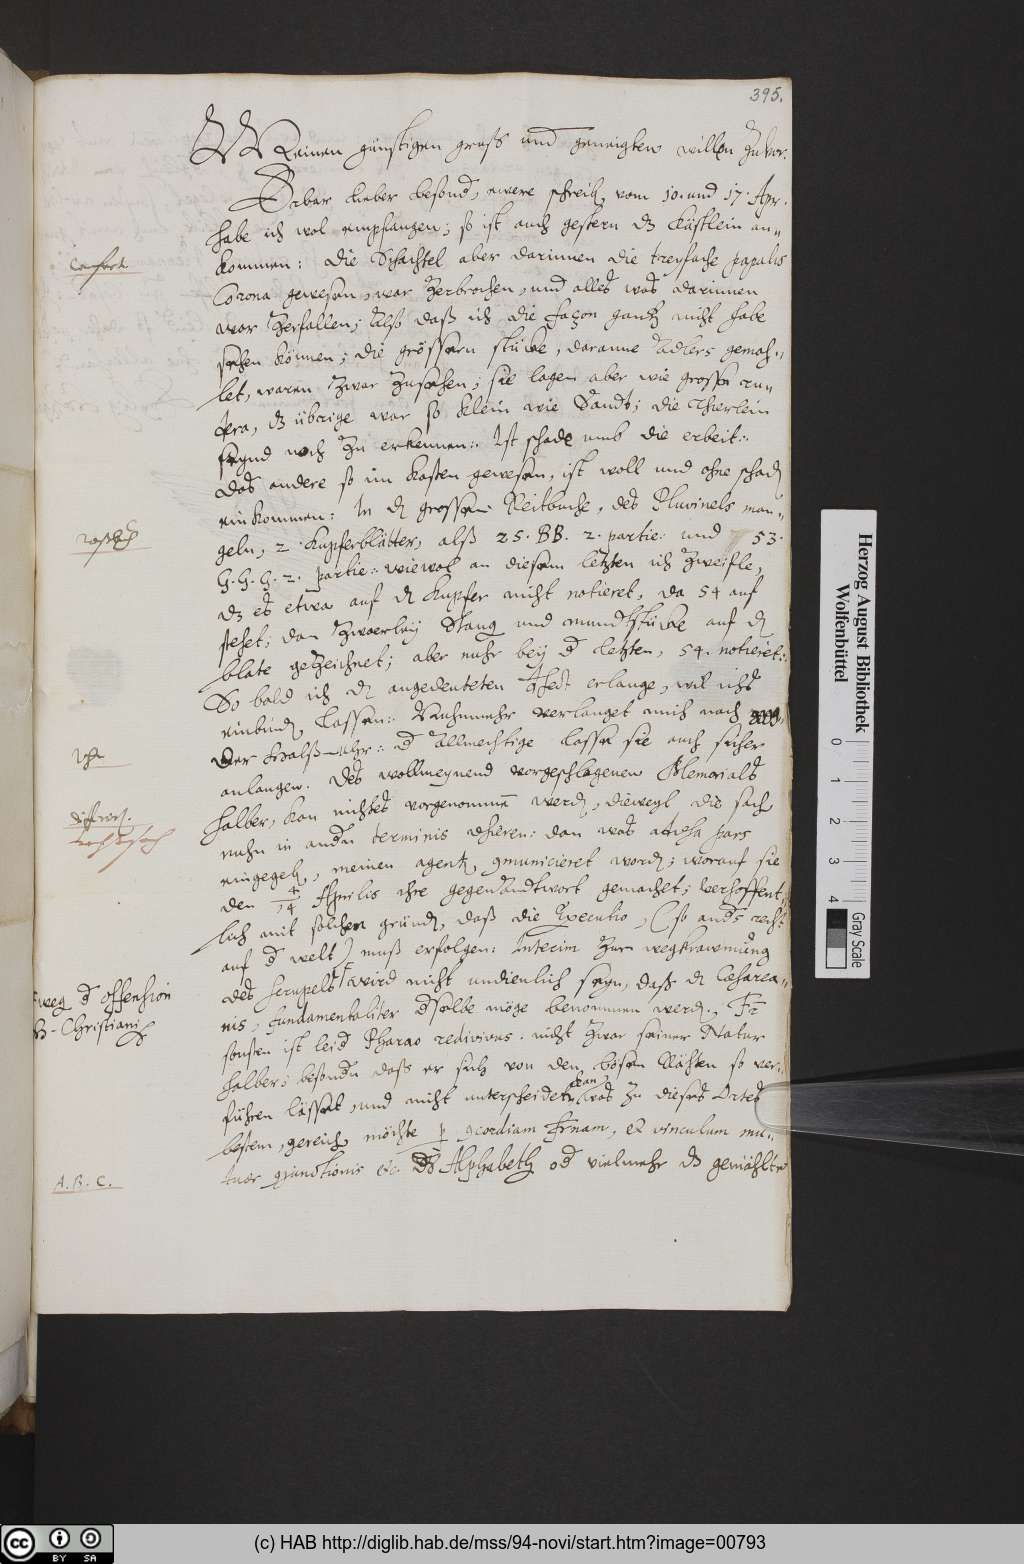 395.
Meinen günstigen gruß und geneigten willen zuvor.
Erbar lieber besond, ewere schreib vom 10. und 17. Apr.
habe ich wol empfangen; so ist auch gestern dz Kästlein an-
kommen: die Schachtel aber darinnen die treyfache papalis
Confect.
Corona gewesen, war zerbrochen, und alles was darinnen
war zerfallen; Also daß ich die façon gantz nicht habe
sehen können; die grössern stücke, daranne Adlers gemah-
let, waren zwar zusehen; sie lagen aber wie grosse
dz übrige war so klein wie Sandt; die Thierlein
seynd noch zu erkennen:. Ist schade umb die erbeit:.
das andere so im kasten gewesen, ist woll und ohne schad
einkommen: In d grossen Reitbuche, des Pluvinels man-
geln, 2. Kupferblätter, alß 25. BB. 2. partie: und 53.
G.G.G. 2. partie: wiewol an diesem letzten ich zweifle,
dz es etwa auf d Kupfer nicht notieret, da 54 auf
stehet; dan zweerley Stang und mundtstücke auf d
blate gezeichnet; aber nuhr bey d letzten, 54. notieret:.
So bald ich d angedeuteten defect erlange, wil ichs
einbind lassen:. Nuhnmehr verlanget mich nach
der Halß-uhr: d Allmechtige lasse sie auch sicher
Uhr
anlangen. Des wollmeynend vorgeschlagenen Memorials
halber, kan nichtes vorgenommen werd, dieweyl die sach
nuhn in andern terminis : dan was adversa pars
eingegeb, meinen agent communicieret word; worauf sie
den 4/14 Aprilis ihre gegenandtwort gemachet; verhoffent-
lich mit solchen gründ, daß die Executio, (so anders recht
auf d welt) muß erfolgen: Interim zur wegkrawmung
des scrupels wird nicht undienlich seyn, daß d Caesarea-
weg d offension
B. Christiani
nis, fundamentaliter dselbe möge benommen werd.
sonsten ist leid Pharao redivivus. nicht zwar seiner Natur
halber; besondern daß er sich von den bösen Rähten so ver-
führen lässet, und nicht unterscheidet, was zu dieses Ortes
bestem, gereich möchte
tuae conjunctionis etc. Ds Alphabeth od vielmehr dz gemählte
A. B. C.
Herzog August Bibliothek
Wolfenbüttel
0 1 2 3 4
Gray Scale
(c) HAB http://diglib.hab.de/mss/94-novi/start.htm?image=00793
cc BY SA